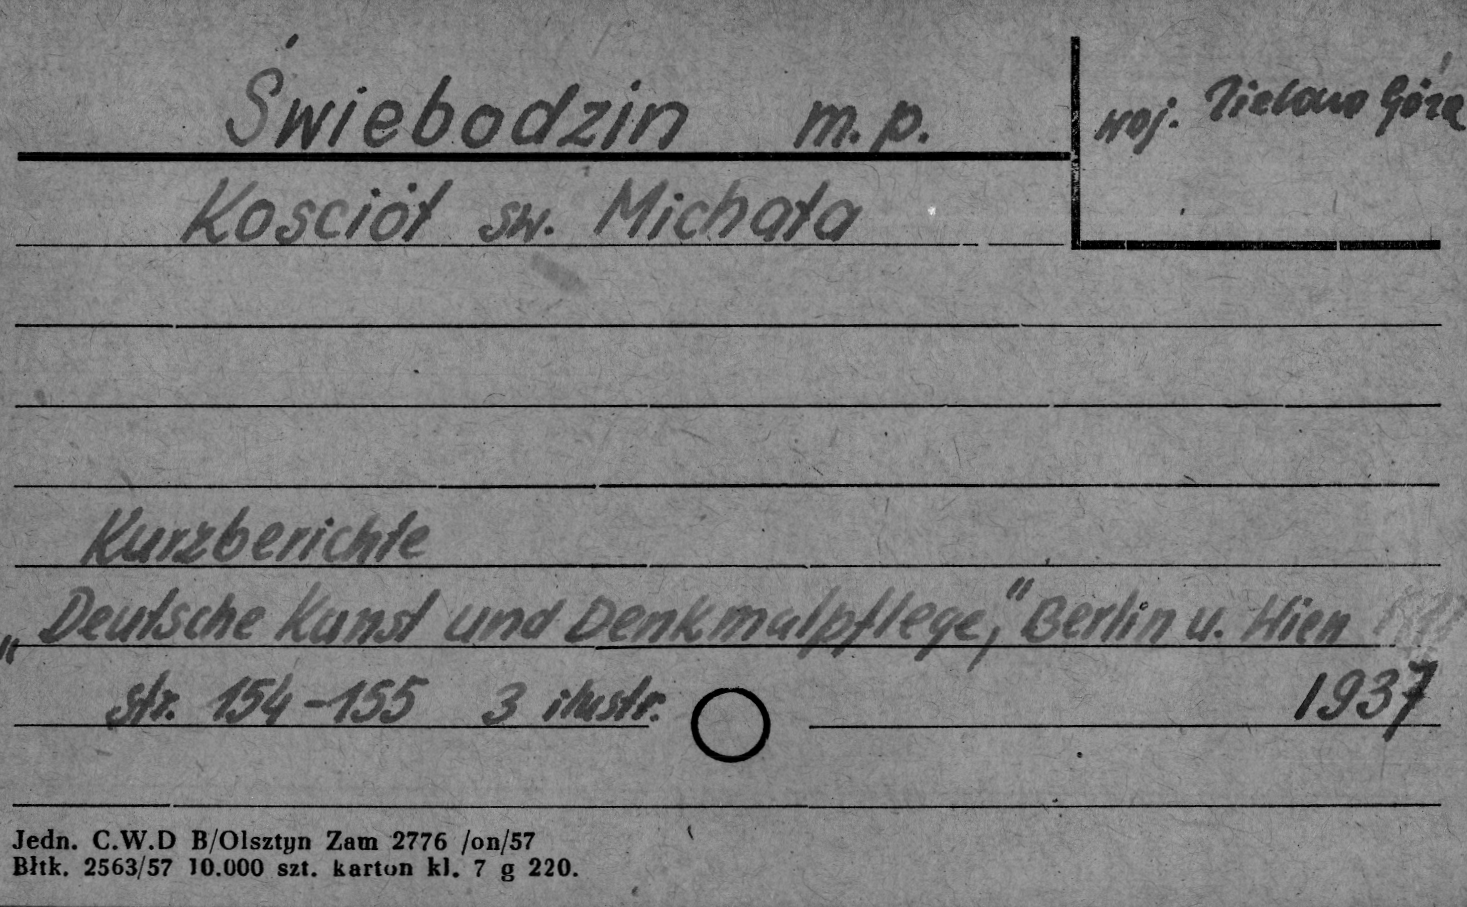 Świebodzin m.p.
woj. Zielona Góra
Kościół św. Michała
Kurzberichte
„Deutsche Kunst und Denkmalpflege," Berlin u. Wien
1937
str. 154-155 3 ilustr.
Jedn. C.W.D B/Olsztyn Zam 2776 /on/57
Błtk. 2563/57 10.000 szt. karton kl. 7 g 220.